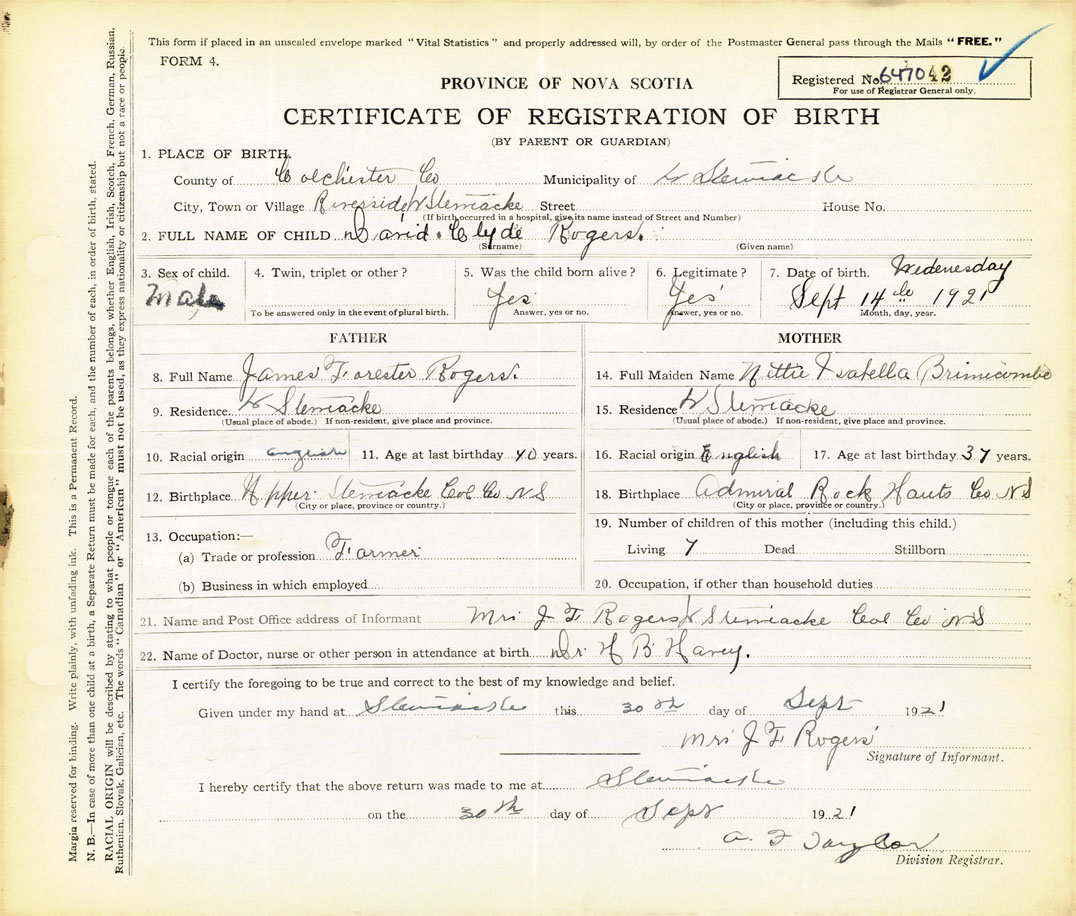 This form if placed in an unsealed envelope marked "Vital Statistics" and properly addressed will, by order of the Postmaster General pass through the Mails "FREE."
FORM 4.
Registered No. 647042
For use of Registrar General only.
PROVINCE OF NOVA SCOTIA
CERTIFICATE OF REGISTRATION OF BIRTH
(BY PARENT OR GUARDIAN)
1. PLACE OF BIRTH.
County of Colchester Co Municipality of W Stewiacke
City, Town or Village Riverside W Stewiacke Street House No.
(If birth occurred in a hospital, give its name instead of Street and Number)
2. FULL NAME OF CHILD David Clyde Rogers.
(Surname) (Given name)
3. Sex of child. 4. Twin, triplet or other? 5. Was the child born alive? 6. Legitimate? 7. Date of birth. Wednesday
Male Yes Yes Sept 14 1921
To be answered only in the event of plural birth. Answer, yes or no. Answer, yes or no. Month, day, year.
FATHER
8. Full Name James Forester Rogers.
9. Residence W Stewiacke
(Usual place of abode.) If non-resident, give place and province.
10. Racial origin English 11. Age at last birthday 40 years.
12. Birthplace Upper Stewiacke Col Co N S
(City or place, province or country.)
13. Occupation:—
(a) Trade or profession Farmer
(b) Business in which employed
MOTHER
14. Full Maiden Name Nittie Isabella Brimicombe
15. Residence W Stewiacke
(Usual place of abode.) If non-resident, give place and province.
16. Racial origin English 17. Age at last birthday 37 years.
18. Birthplace Admiral Rock Hants Co N S
(City or place, province or country.)
19. Number of children of this mother (including this child.)
Living 7 Dead Stillborn
20. Occupation, if other than household duties
21. Name and Post Office address of Informant Mrs J F Rogers W Stewiacke Col Co N S
22. Name of Doctor, nurse or other person in attendance at birth Dr. H B Havey.
I certify the foregoing to be true and correct to the best of my knowledge and belief.
Given under my hand at Stewiacke this 30th day of Sept 1921
Mrs J F Rogers
Signature of Informant.
I hereby certify that the above return was made to me at Stewiacke
on the 30th day of Sept 1921
A. F Taylor
Division Registrar.
Margin reserved for binding. Write plainly, with unfading ink. This is a Permanent Record.
N. B.—In case of more than one child at a birth, a Separate Return must be made for each, and the number of each, in order of birth, stated.
RACIAL ORIGIN will be described by stating to what people or tongue each of the parents belongs, whether English, Irish, Scotch, French, German, Russian,
Ruthenian, Slovak, Galician, etc. The words "Canadian" or "American" must not be used, as they express nationality or citizenship but not a race or people.